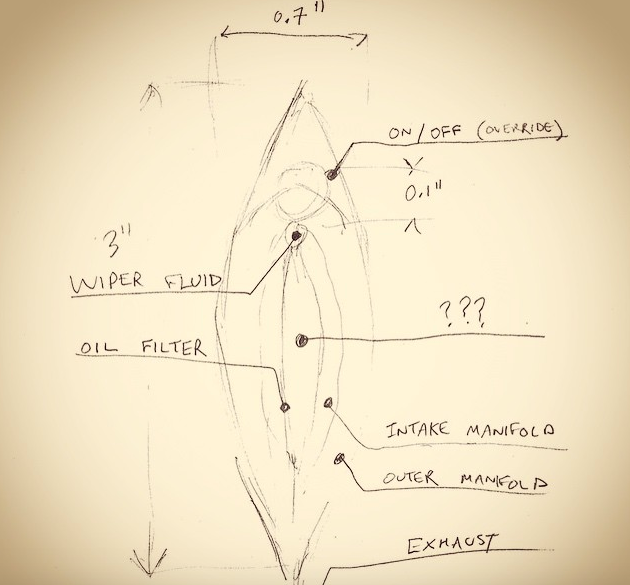 0.7"
ON/OFF (OVERRIDE)
0.1"
3"
WIPER FLUID
???
OIL FILTER
INTAKE MANIFOLD
OUTER MANIFOLD
EXHAUST